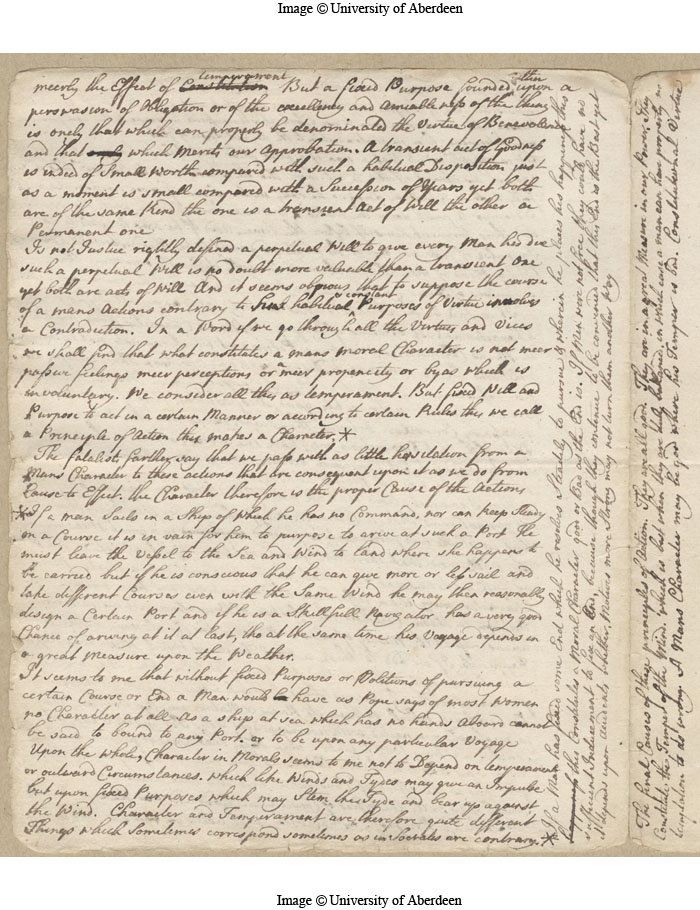 Image © University of Aberdeen
temperament
meerly the Effect of Constitution But a fixed Purpose founded either upon a
perswasion of Obligation or of the excellency and amiableness of the thing
is onely that which can properly be denominated the Virtue of Benevolence
and that onely which Merits our Approbation. A transient act of Goodness
is indeed of Small Worth compared with such a habitual Disposition just
as a moment is small compared with a Succession of Years yet both
are of the same Kind the one is a transient Act of Will the other a
Permanent one
Is not Justice rightly defined a perpetual Will to give every Man his due
such a perpetual Will is no doubt more valuable than a transient One
yet both are acts of Will And it seems obvious that to suppose the course
of a mans Actions contrary to habitual constant Purposes of Virtue involves
a Contradiction. In a Word if we go through all the Virtues and Vices
we shall find that what constitutes a mans moral Character is not meer
passive feelings meer perceptions or meer propensity or byas which is
involuntary. We consider all this as temperament. But fixed Will and
Purpose to act in a certain Manner or according to certain Rules this we call
a Principle of Action this makes a Character. *
The fatalists farther say that we pass with as little hesitation from a
Mans Character to these actions that are consequent upon it as we do from
Cause to Effect. the Character therefore is the proper Cause of the Actions
* If a man Sails in a Ship of which he has no Command, nor can keep Steady
in a Course it is in vain for him to purpose to arive at such a Port He
must leave the Vessel to the Sea and Wind to land where she happens to
be carried but if he is conscious that he can give more or less sail and
take different Courses even with the Same Wind he may then reasonably
design a Certain Port and if he is a Skillfull Navigator has a very good
Chance of ariving at it at last, tho at the same time his Voyage depends in
a great Measure upon the Weather.
It seems to me that without fixed Purposes or Volitions of pursuing a
certain Course or End a Man would have as Pope says of most Women
no Character at all. As a ship at sea which has no hands Aboard cannot
be said to bound to any Port. or to be upon any particular Voyage
Upon the whole Character in Morals seems to me not to Depend on temperament
or outward Circumstances. which like Winds and Tydes may give an Impulse
but upon fixed Purposes which may Stem the Tyde and bear up against
the Wind. Character and Temperament are therefore quite different
Things which sometimes correspond sometimes as in Socrates are contrary. *
* If a Man has fixed some End which he resolves Steadily to pursue & wherein he places his happiness this
this Constitutes a Moral Character good or Bad as the End is. If Men were not free they could have no
sufficient Inducement to fix an End, because though they continue to be convinced that this End is the Best yet
it depends upon accidents whether Motives more Strong may not turn them another Way
The final Causes of these principles of Action. They are all good. They are in a great Measure in our Power. They
Constitute the Temper of the Mind. which is best when they are duly balanced, in which case a man can have properly no
temptation to do wrong. A Mans Character may be good where his Temper is bad. Constitutional Virtue
Image © University of Aberdeen